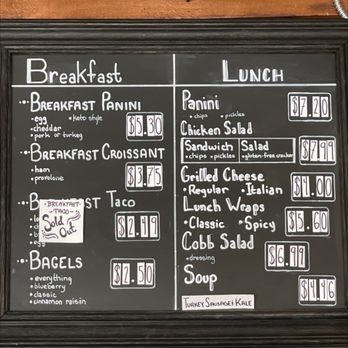 Breakfast
•Breakfast Panini
•egg •keto style
•cheddar
•pork or turkey
$5.30
•Breakfast Croissant
•ham
•provolone
$3.75
Taco
Breakfast
Taco
Sold
Out
•egg
$2.49
•Bagels
•everything
•blueberry
•classic
•cinnamon raisin
$2.50
Lunch
Panini
•chips •pickles
$7.20
Chicken Salad
Sandwich Salad
•chips •pickles •gluten-free cracker
$7.99
Grilled Cheese
•Regular •Italian
$4.00
Lunch Wraps
•Classic •Spicy
$5.60
Cobb Salad
•dressing
$6.99
Soup
$4.46
Turkey Sausage & Kale